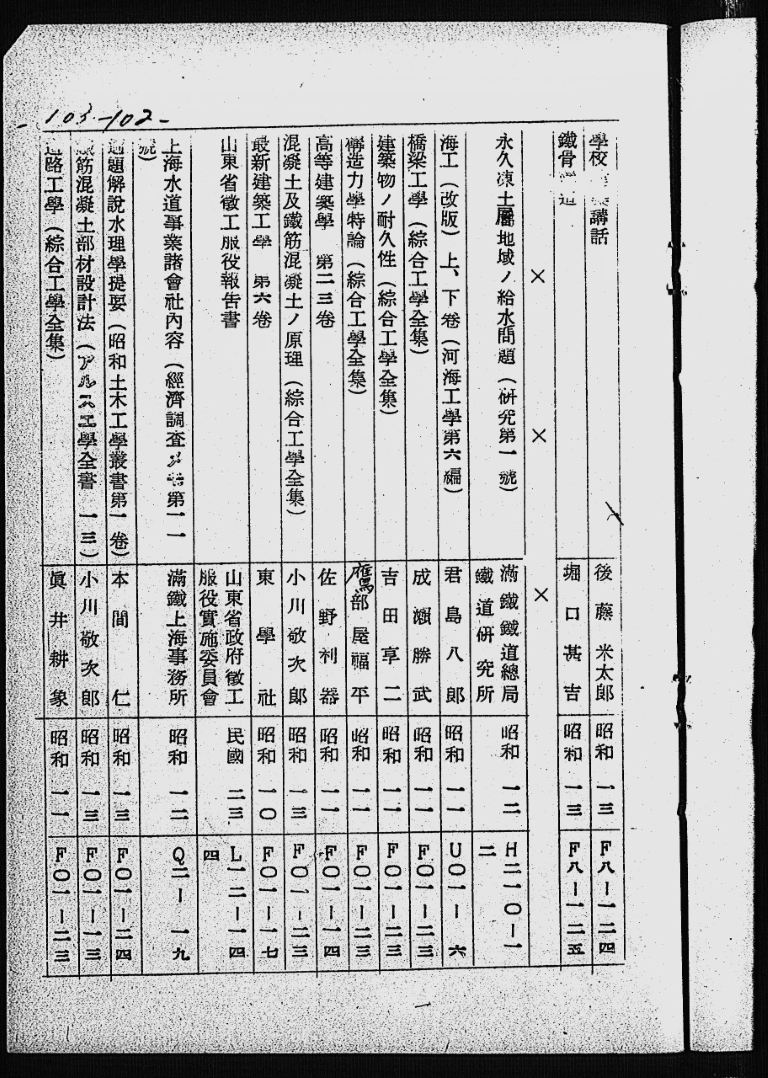 103-102-
學校 講話 後藤米太郎 昭和一三 F八ー一二四
鐵骨 造 堀口甚吉 昭和一三 F八ー一二五
× × ×
永久凍土層地域ノ給水問題(研究第一號) 滿鐵鐵道總局 昭和一二 H二一〇ー一
鐵道研究所 二
海工(改版)上、下卷(河海工學第六編) 君島八郎 昭和一一 U〇一ー六
橋梁工學(綜合工學全集) 成瀬勝武 昭和一一 F〇一ー二三
建築物ノ耐久性(綜合工學全集) 吉田享二 昭和一一 F〇一ー二三
構造力學特論(綜合工學全集) 鷹部屋福平 昭和一一 F〇一ー二三
高等建築學 第二三卷 佐野利器 昭和一一 F〇一ー一四
混凝土及鐵筋混凝土ノ原理(綜合工學全集) 小川敬次郎 昭和一三 F〇一ー二三
最新建築工學 第六卷 東學社 昭和一〇 F〇一ー一七
山東省徵工服役報告書 山東省政府徵工 民國二三 L一二ー一四
服役實施委員會 四
上海水道事業諸會社內容(經濟調査 第一一 滿鐵上海事務所 昭和一二 Q二ー一九
號)
問題解說水理學提要(昭和土木工學叢書第一卷) 本間仁 昭和一三 F〇一ー二四
筋混凝土部材設計法(アルス工學全書 一三) 小川敬次郎 昭和一三 F〇一ー一三
道路工學(綜合工學全集) 眞井耕象 昭和一一 F〇一ー二三